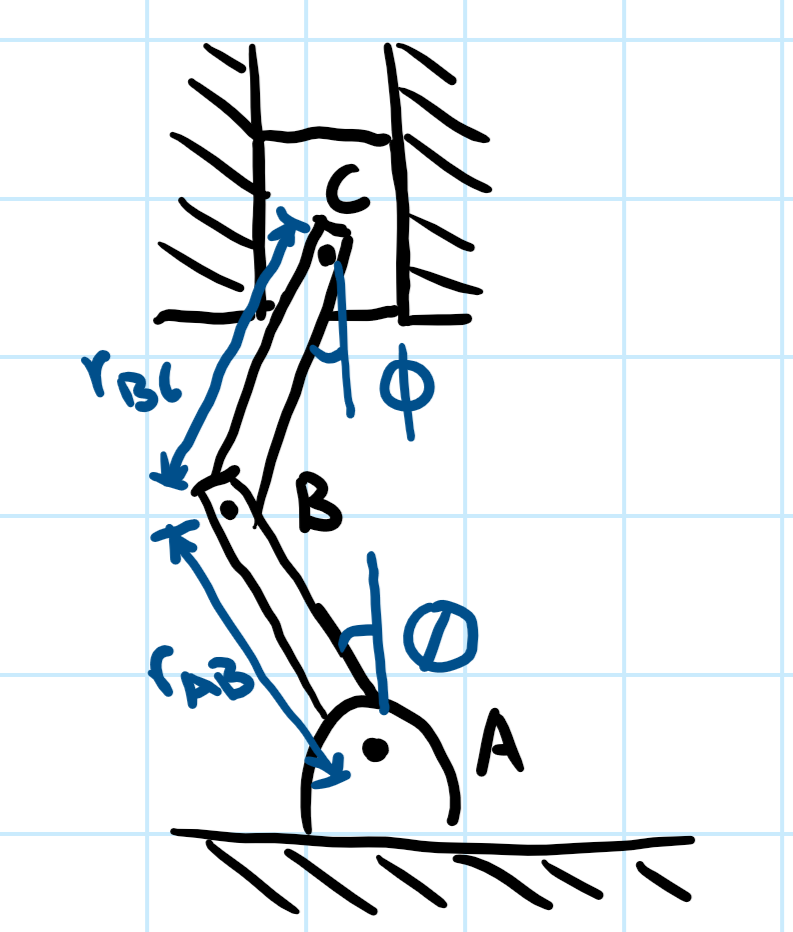 C
r_BC
ϕ
B
θ
r_AB
A